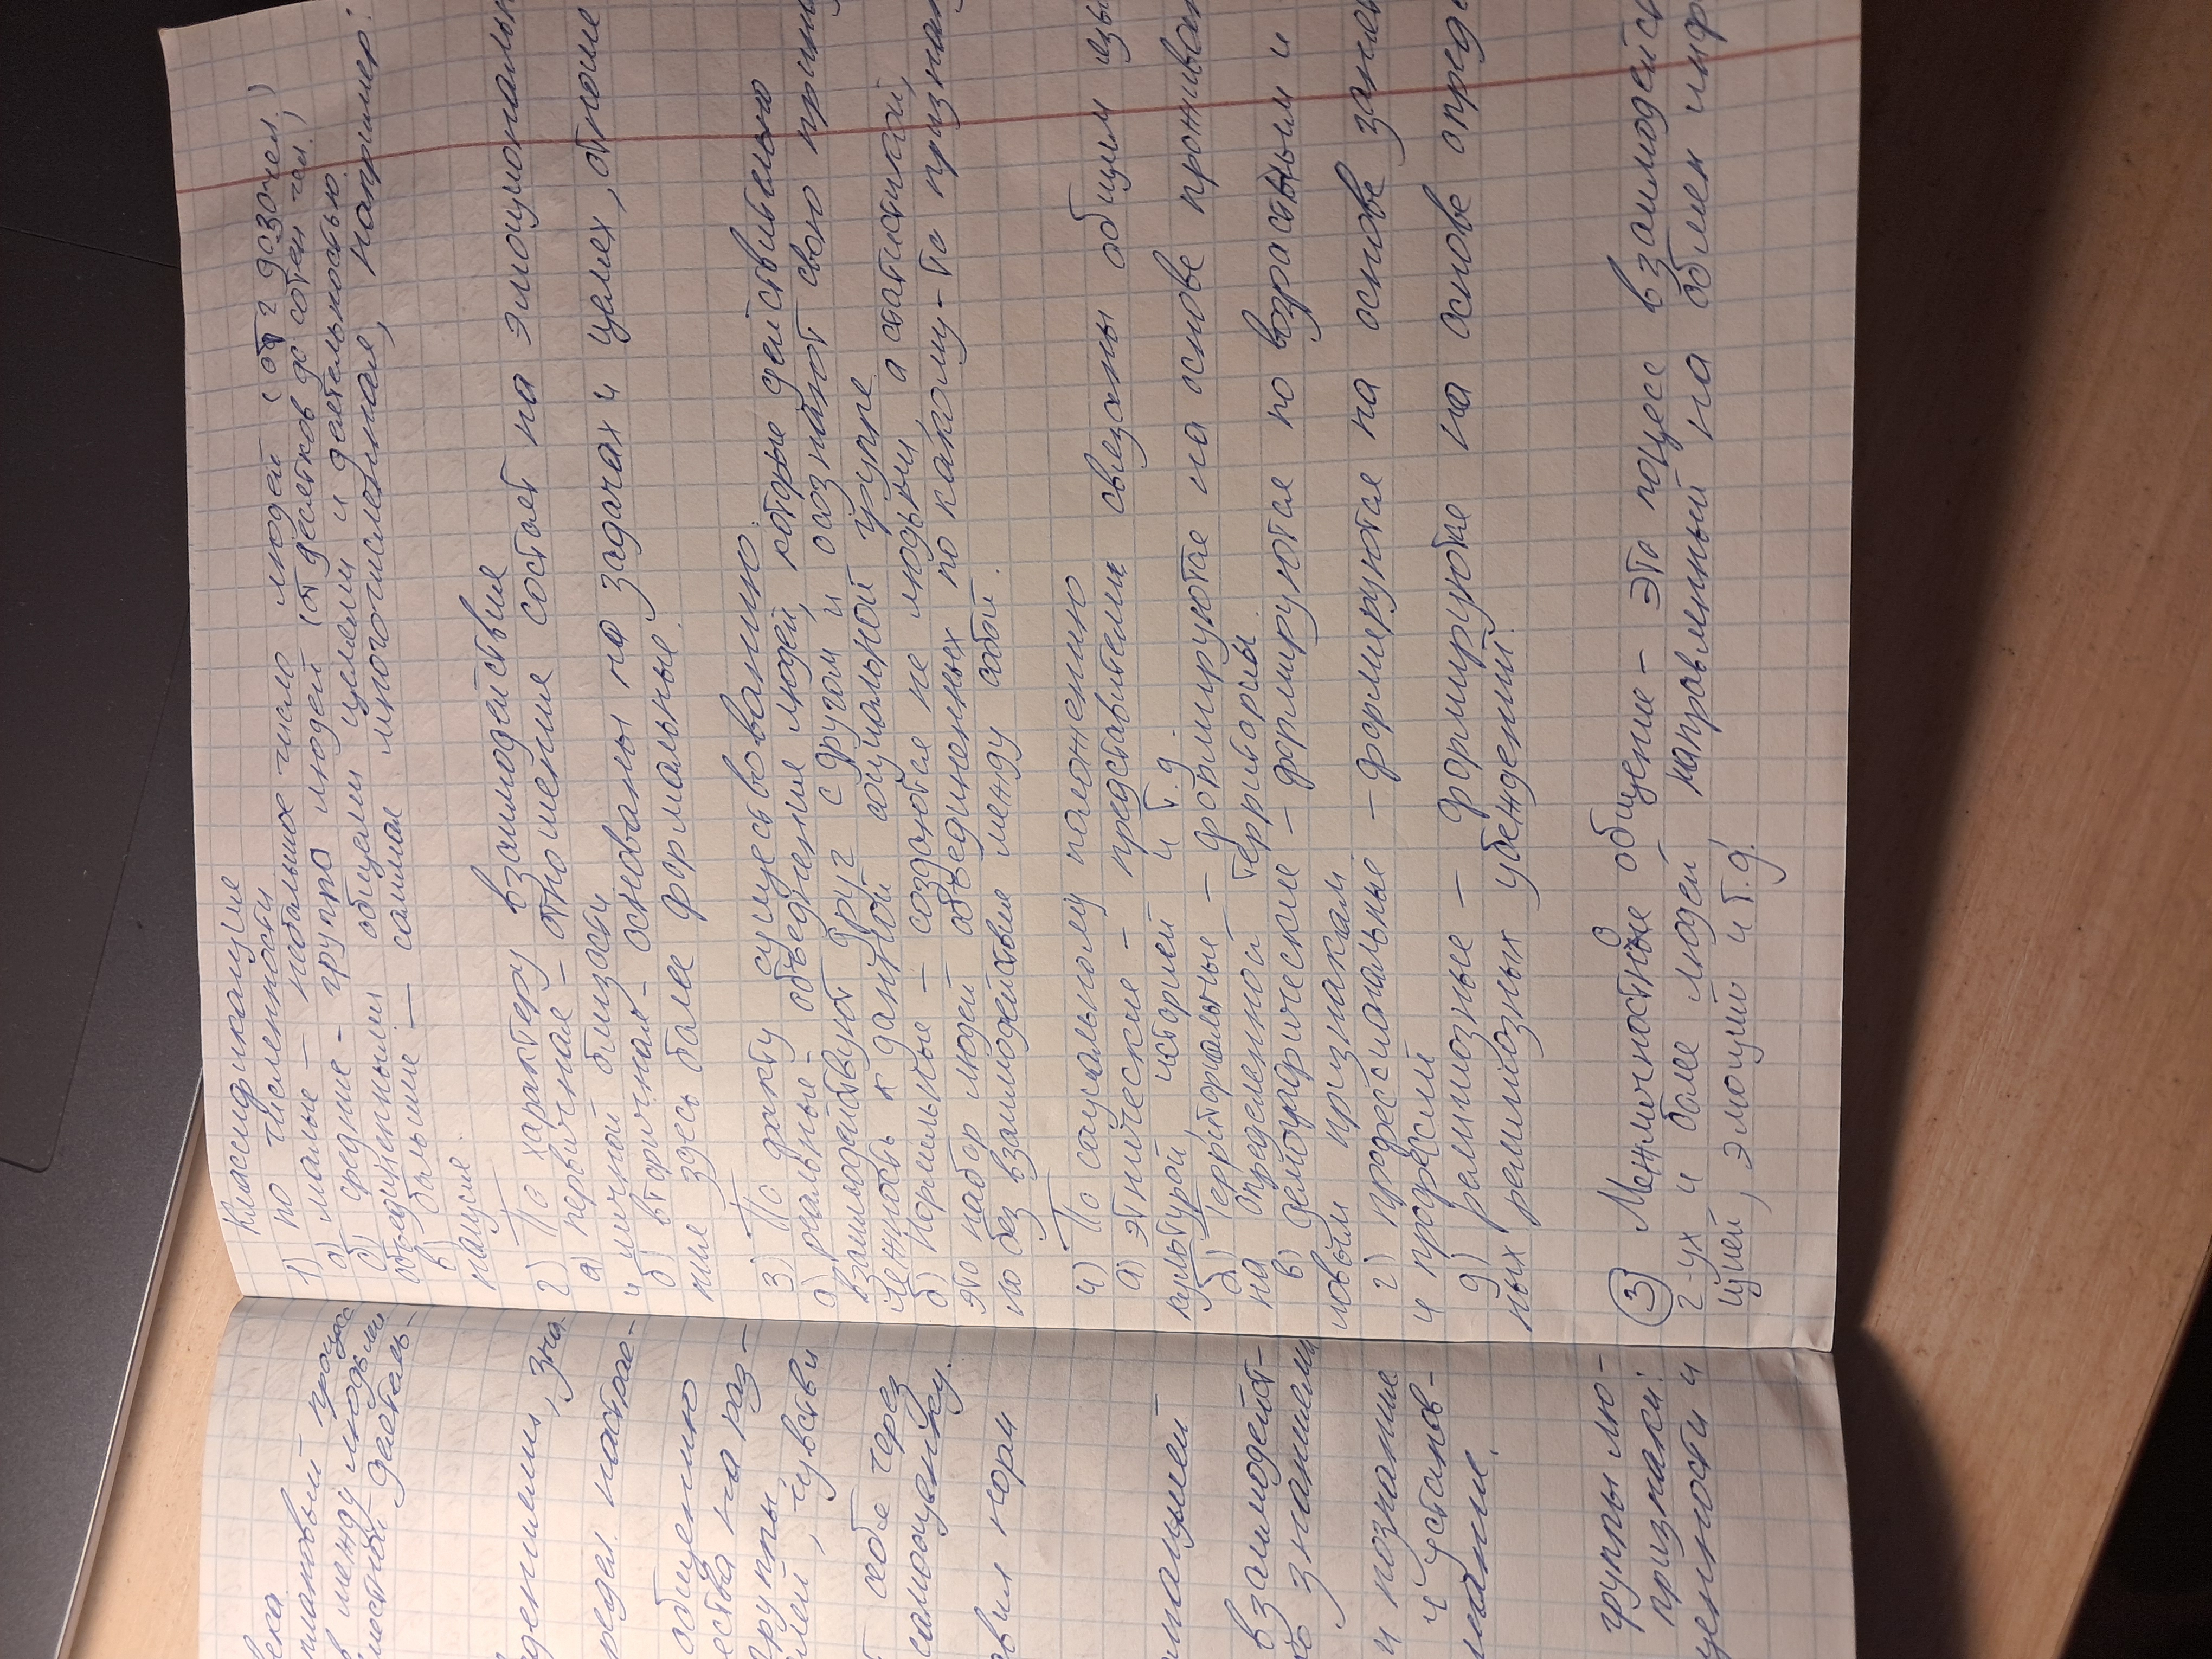 века
между людьми
группы
общению
себе через
самооценку.
взаимодейст-
знаниями
и познание
и установ-
группы лю-
признаки:
ценности и
Классификация
1) по численности
а) малые — небольшое число людей (от 2 до 30 чел.)
б) средние - группа людей (от десятков до сотен чел.)
объединенными общими целями и деятельностью.
в) большие — самая многочисленная, например:
нация.
2) По характеру взаимодействия
а) первичная - отношение состоят на эмоциональн
и личной близости
б) вторичная - основаны на задачах и целях, отноше
ние здесь более формальные.
3) По факту существованию:
а) реальные - объединение людей, которые действительно
взаимодействуют друг с другом и осознают свою прина
лежность к данной социальной группе
б) Нормальные — создаются не людьми, а статистикой,
это набор людей объединенных по какому-то признак
но без взаимодействие между собой.
4) По социальному положению
а) этнические - представители связаны общим язы
культурой, историей и т.д.
б) территориальные — формируются на основе проживан
на определенной территории.
в) демографические - формируются по возрастным и
половым признакам
г) профессиональные - формируются на основе занен
и професий
д) религиозные — формируются на основе опред
ных религиозных убеждений.
3 Межличностные общение - это поцесс взаимодейст
2-ух и более людей, направленный на обмен инфр
цией, эмоций и т.д.